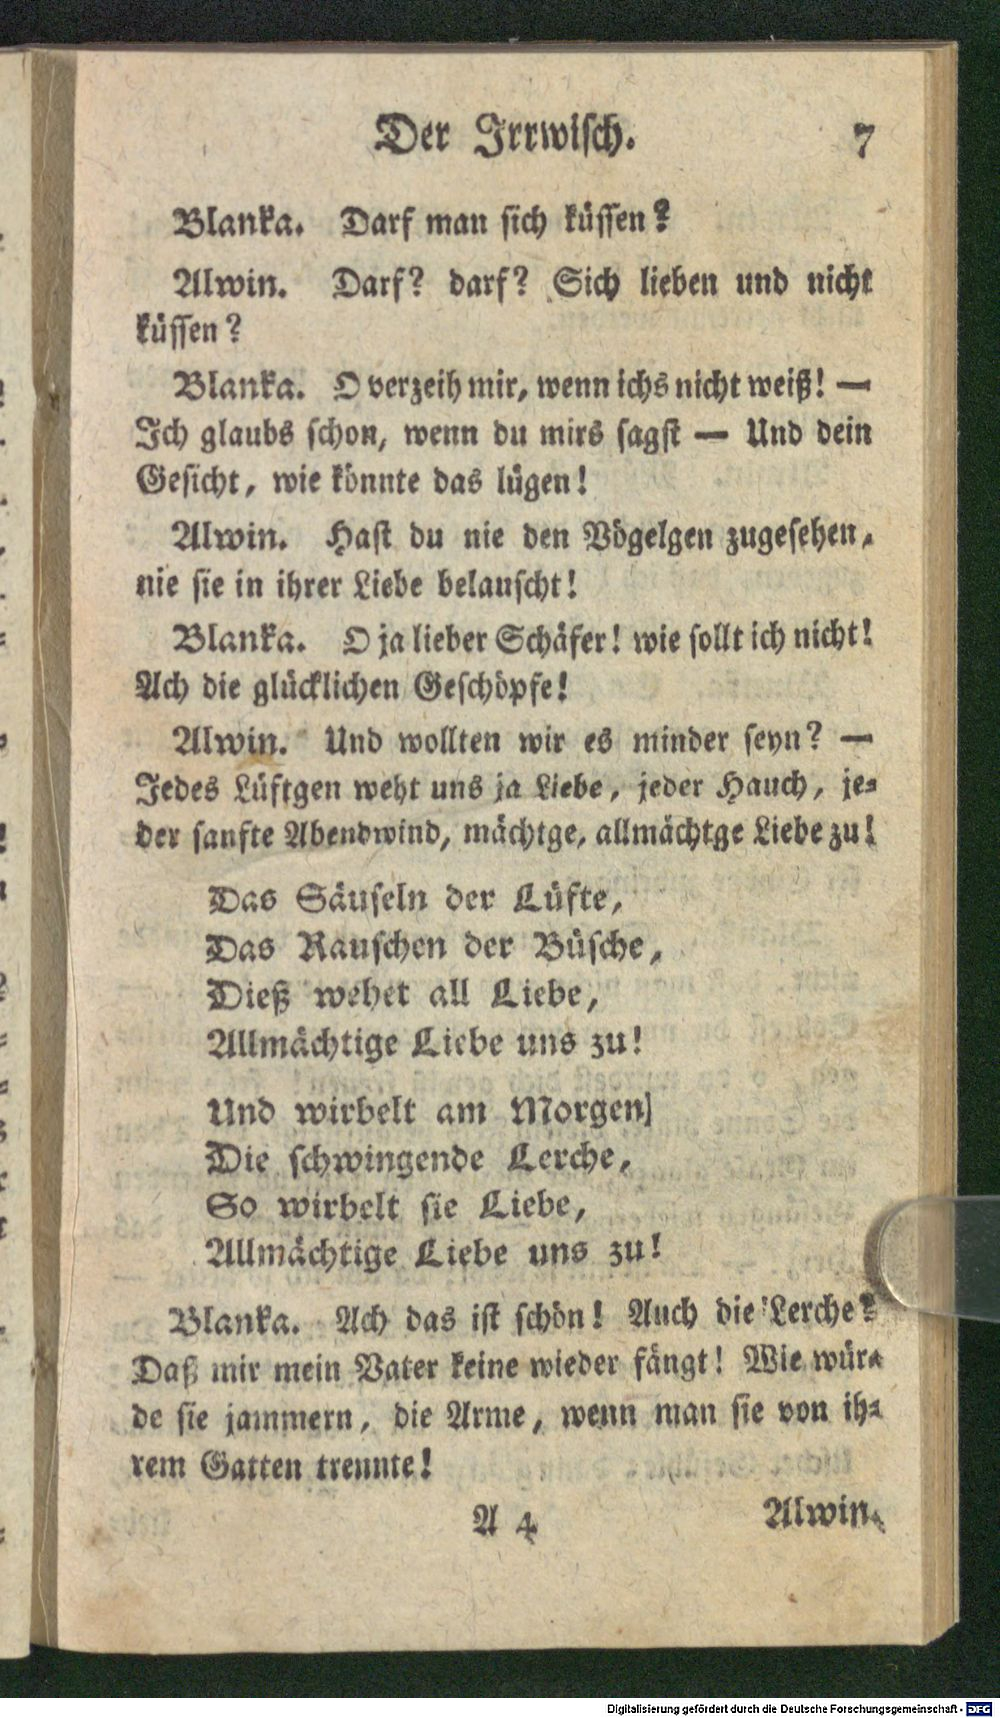 Der Irrwisch. 7
Blanka. Darf man sich küssen?
Alwin. Darf? darf? Sich lieben und nicht
küssen?
Blanka. O verzeih mir, wenn ichs nicht weiß! —
Ich glaubs schon, wenn du mirs sagst — Und dein
Gesicht, wie könnte das lügen!
Alwin. Hast du nie den Vögelgen zugesehen,
nie sie in ihrer Liebe belauscht!
Blanka. O ja lieber Schäfer! wie sollt ich nicht!
Ach die glücklichen Geschöpfe!
Alwin. Und wollten wir es minder seyn? —
Jedes Lüftgen weht uns ja Liebe, jeder Hauch, je-
der sanfte Abendwind, mächtge, allmächtge Liebe zu!
Das Säuseln der Lüfte,
Das Rauschen der Büsche,
Dieß wehet all Liebe,
Allmächtige Liebe uns zu!
Und wirbelt am Morgen
Die schwingende Lerche,
So wirbelt sie Liebe,
Allmächtige Liebe uns zu!
Blanka. Ach das ist schön! Auch die Lerche?
Daß mir mein Vater keine wieder fängt! Wie wür-
de sie jammern, die Arme, wenn man sie von ih-
rem Gatten trennte!
A 4 Alwin.
Digitalisierung gefördert durch die Deutsche Forschungsgemeinschaft - DFG